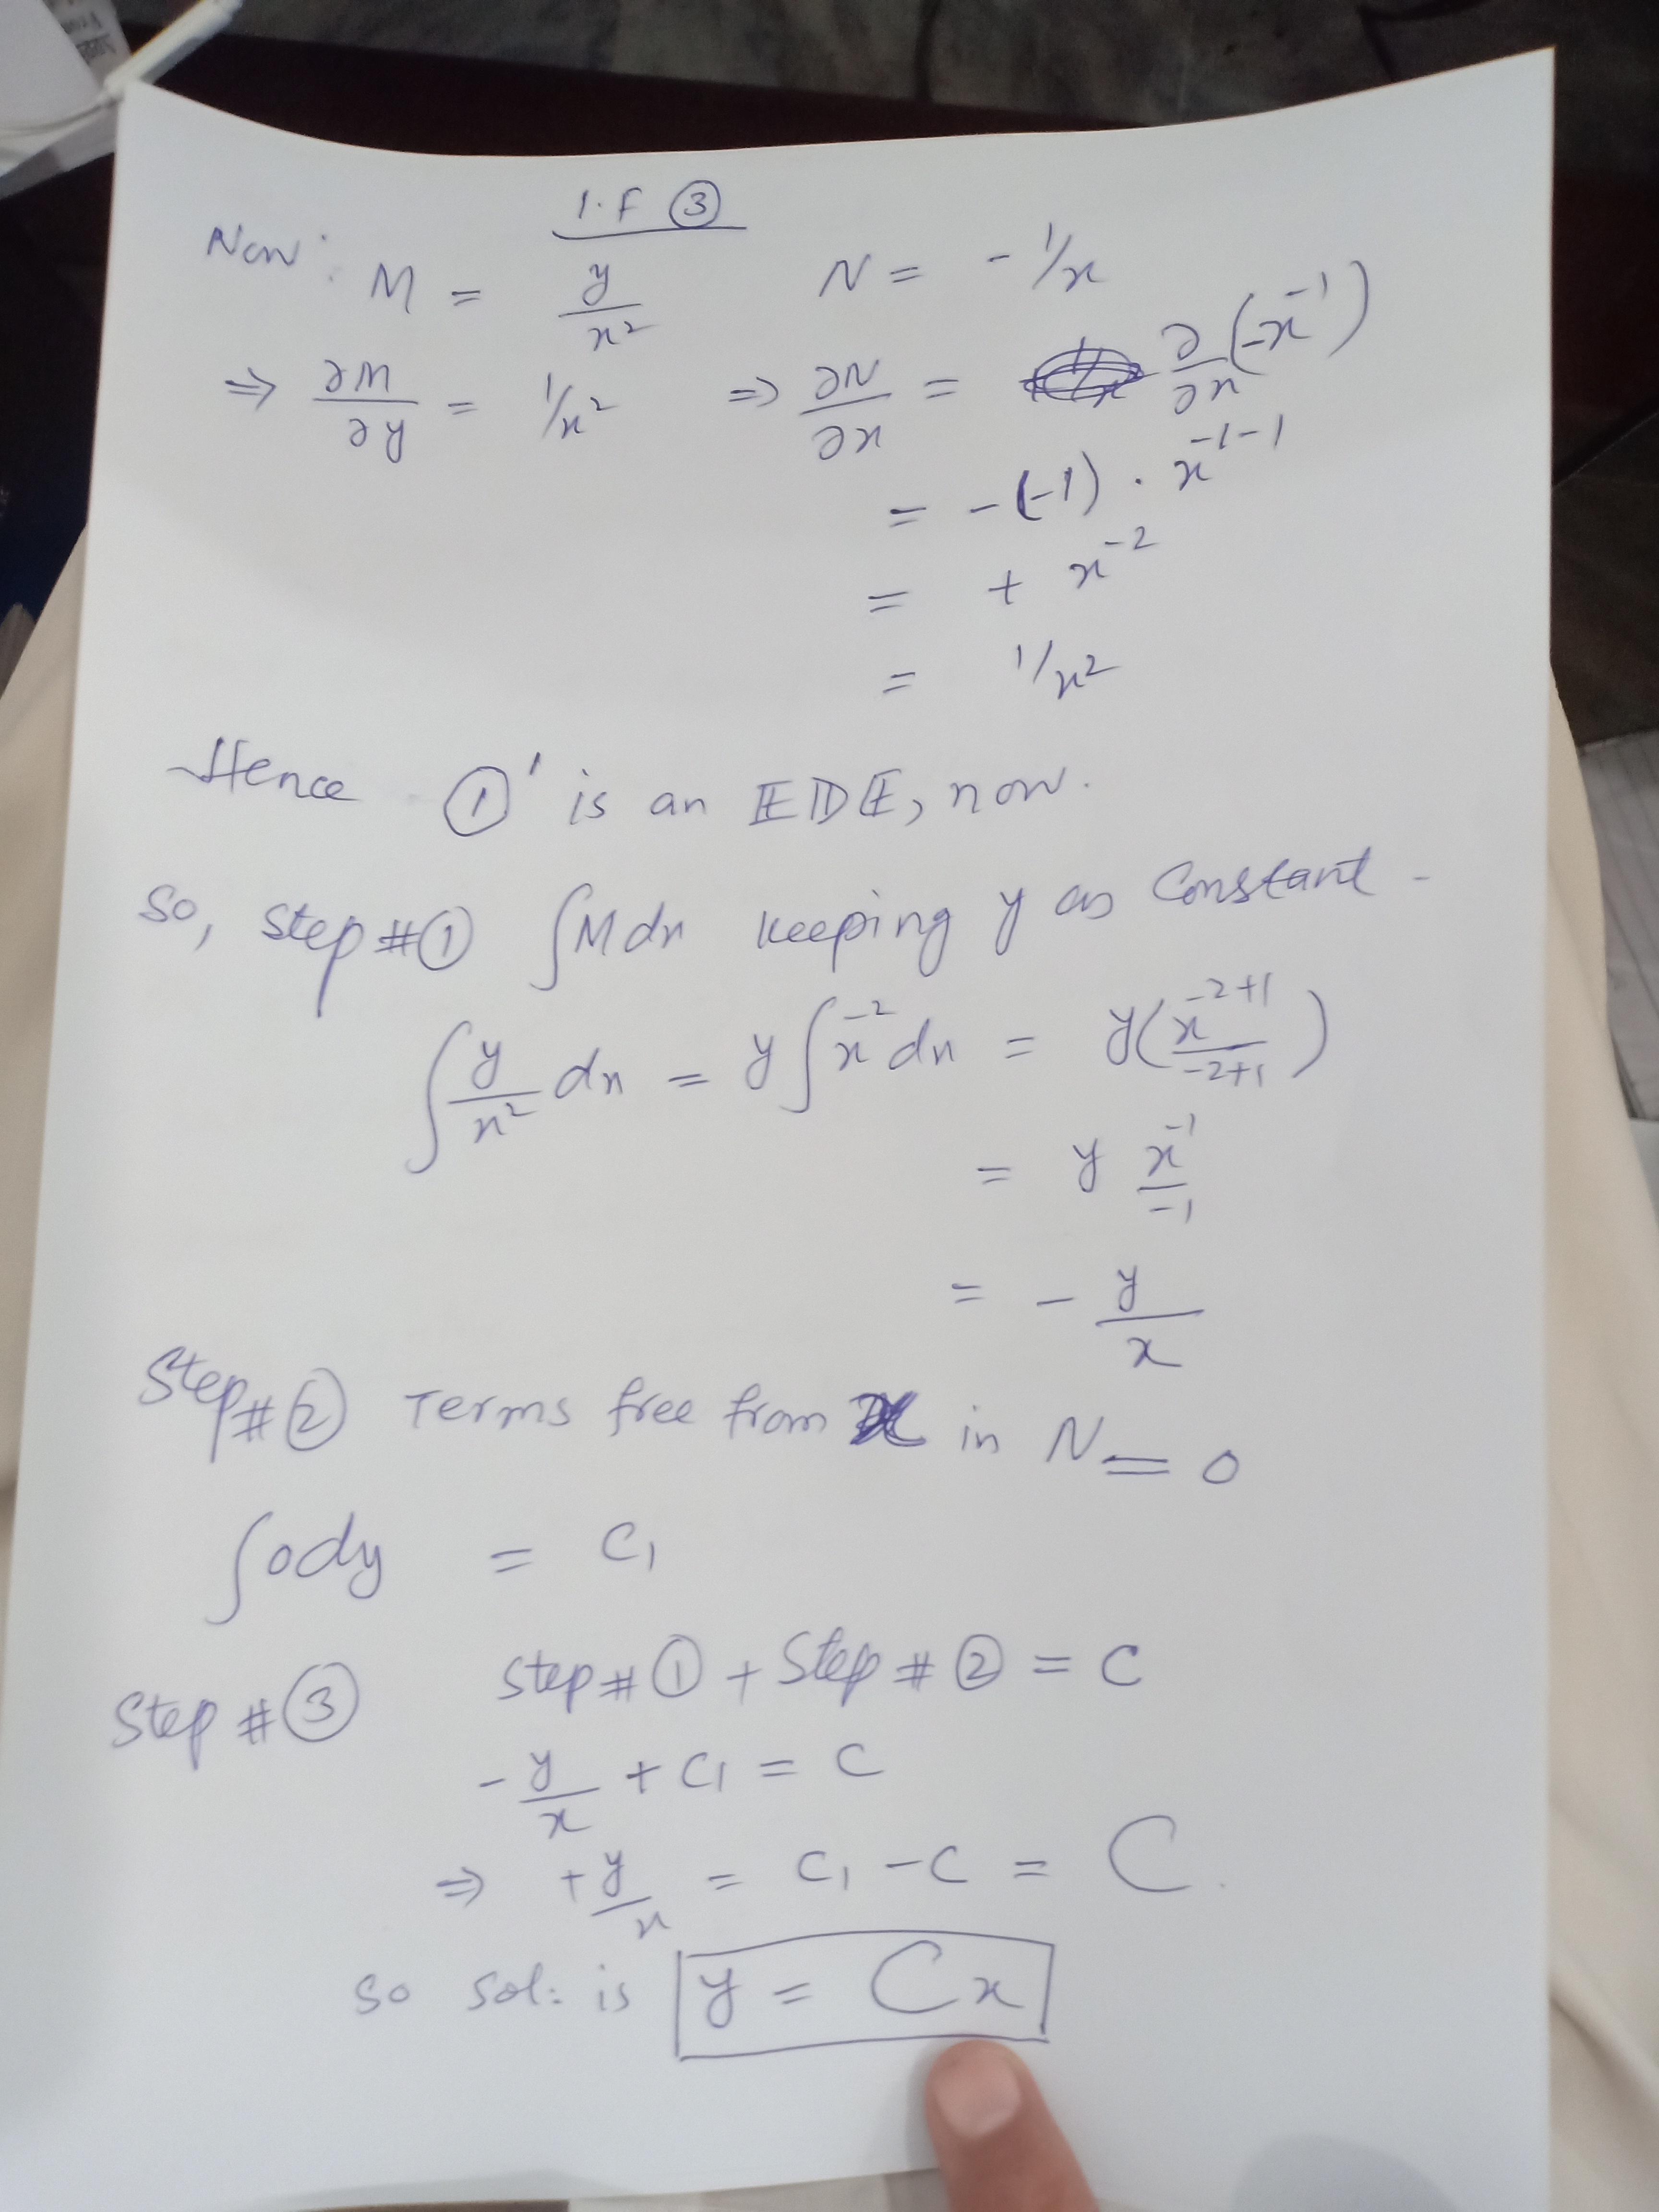 I.F ③
Now: M = y/x² N = -1/x
⇒ ∂M/∂y = 1/x² ⇒ ∂N/∂x = ∂/∂x (-x⁻¹)
= -(-1) · x⁻¹⁻¹
= + x⁻²
= 1/x²
Hence ①' is an EDE, now.
So, Step #① ∫Mdx keeping y as Constant -
∫ y/x² dx = y ∫ x⁻² dx = y( x⁻²⁺¹/-2+1 )
= y x⁻¹/-1
= - y/x
Step #② Terms free from x in N = 0
∫ 0dy = C₁
Step #③ Step #① + Step #② = C
- y/x + C₁ = C
⇒ + y/x = C₁ - C = C.
So sol: is y = Cx